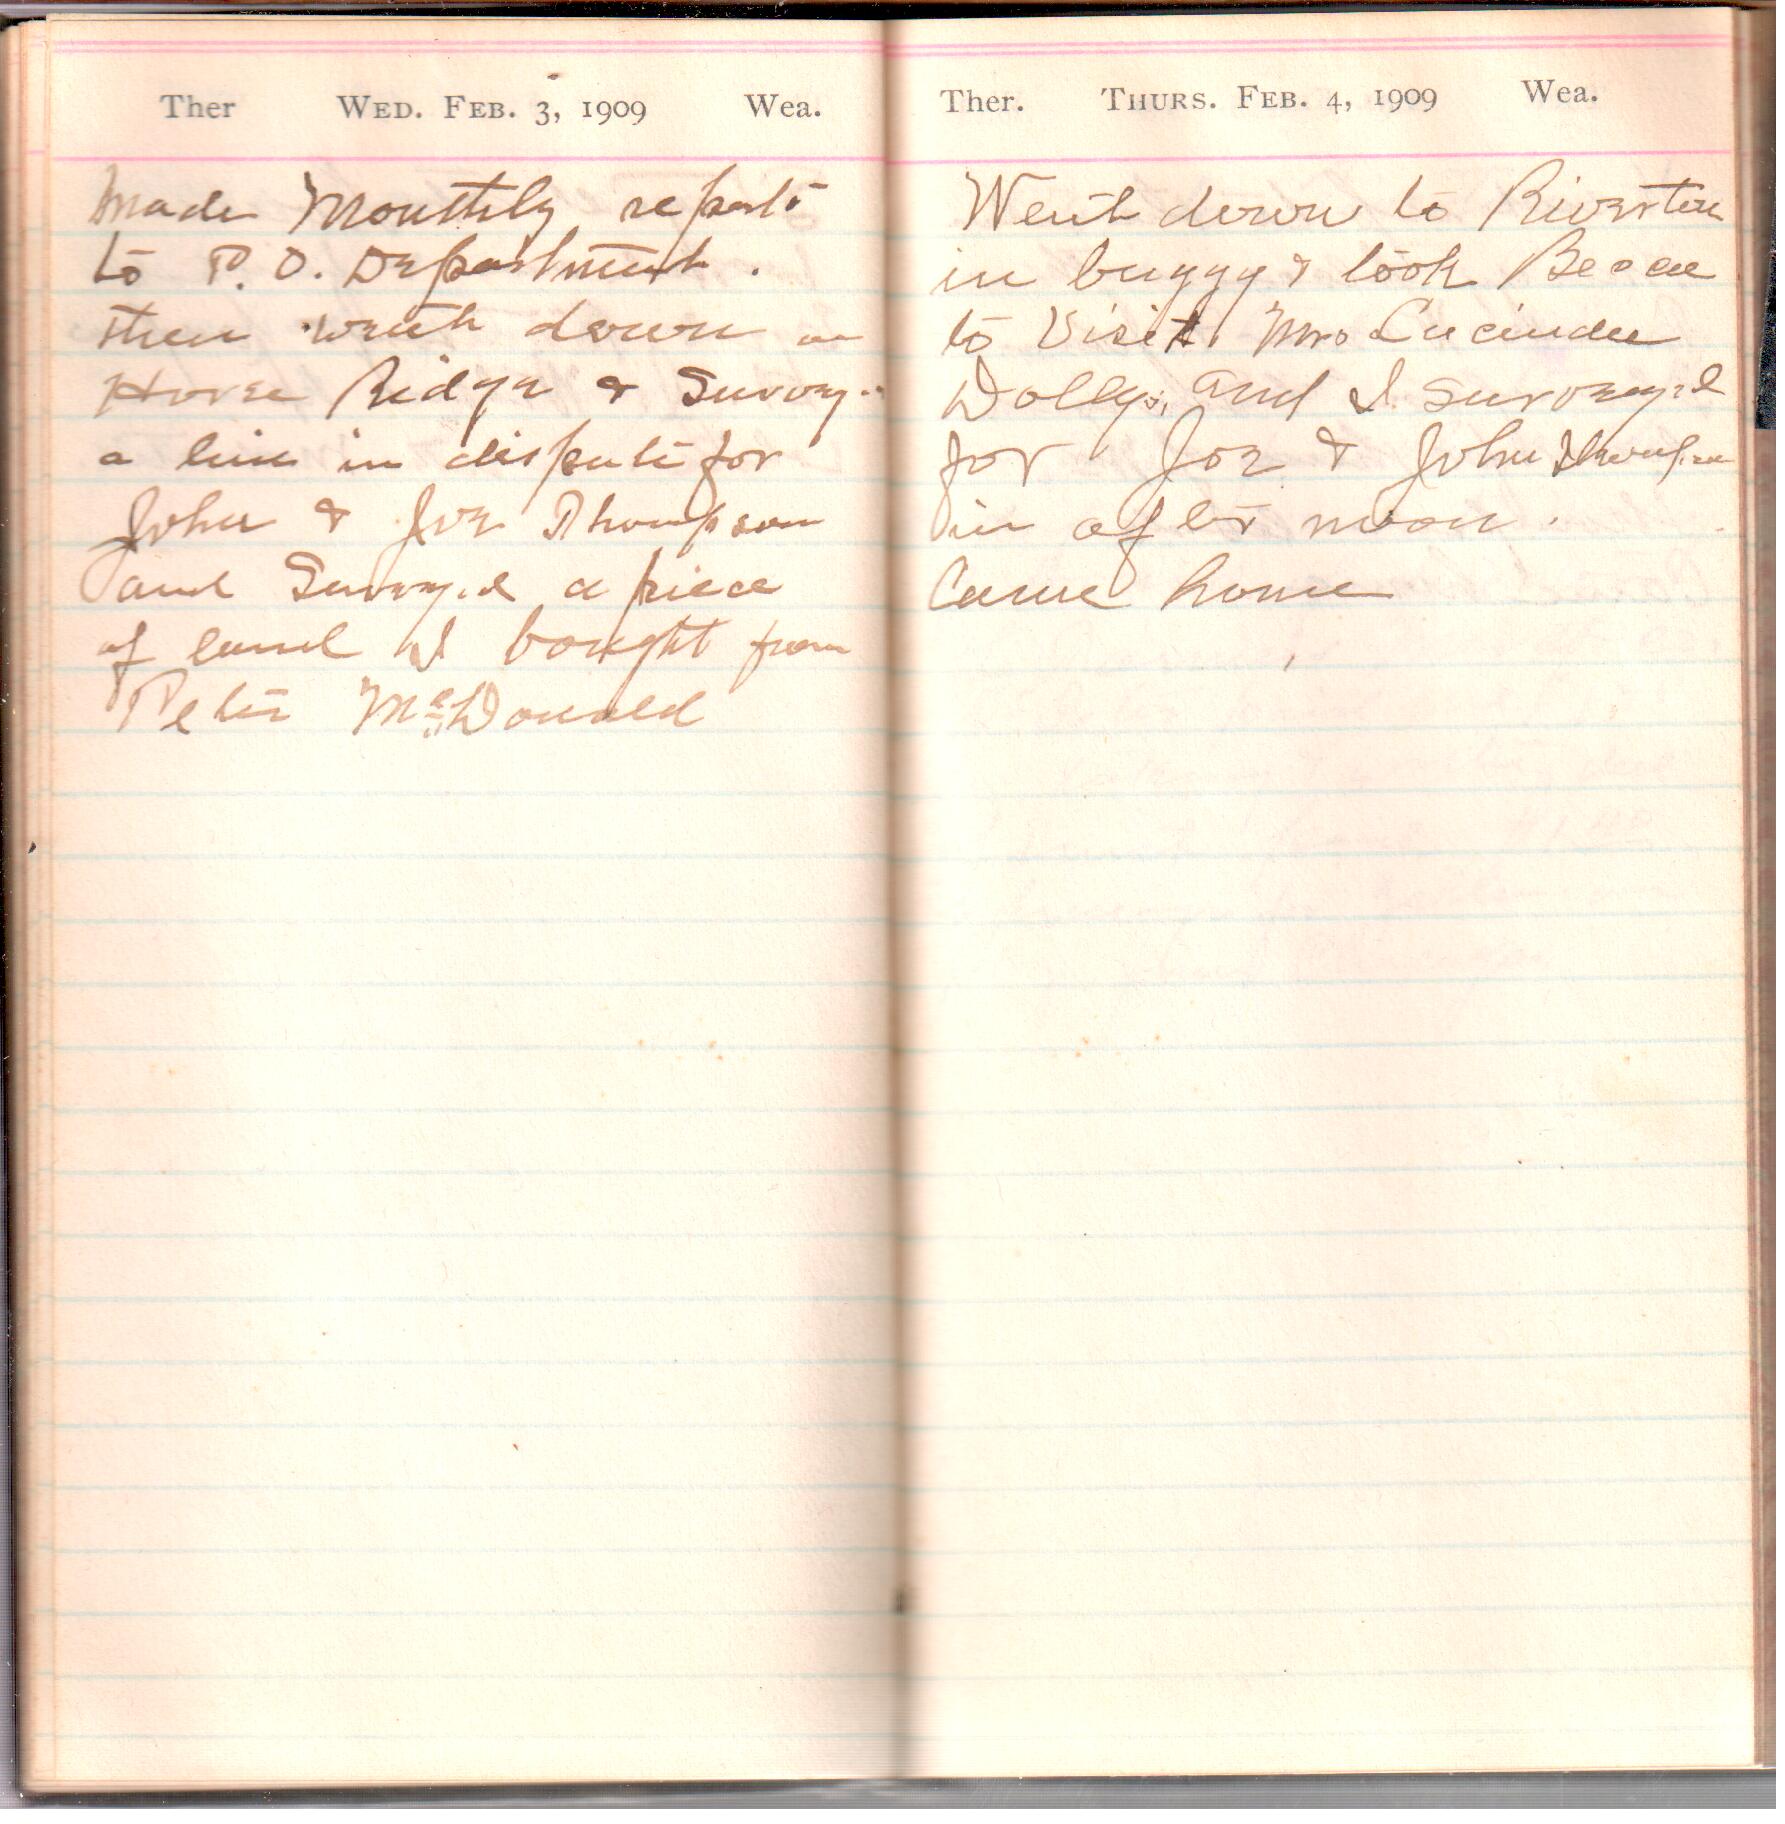 Ther WED. FEB. 3, 1909 Wea.
Made Monthly report
to P. O. Department.
then went down on
Horse Ridge & Survey.
a line in dispute for
John & Joe Thompson
and Survey.d a piece
of land I bought from
Peter McDonald
Ther. THURS. FEB. 4, 1909 Wea.
Went down to Riverton
in buggy & took
to Visit Mrs Lucinda
Dolly, and I survey.d
for Joe & John Thompson
in after noon.
Came home